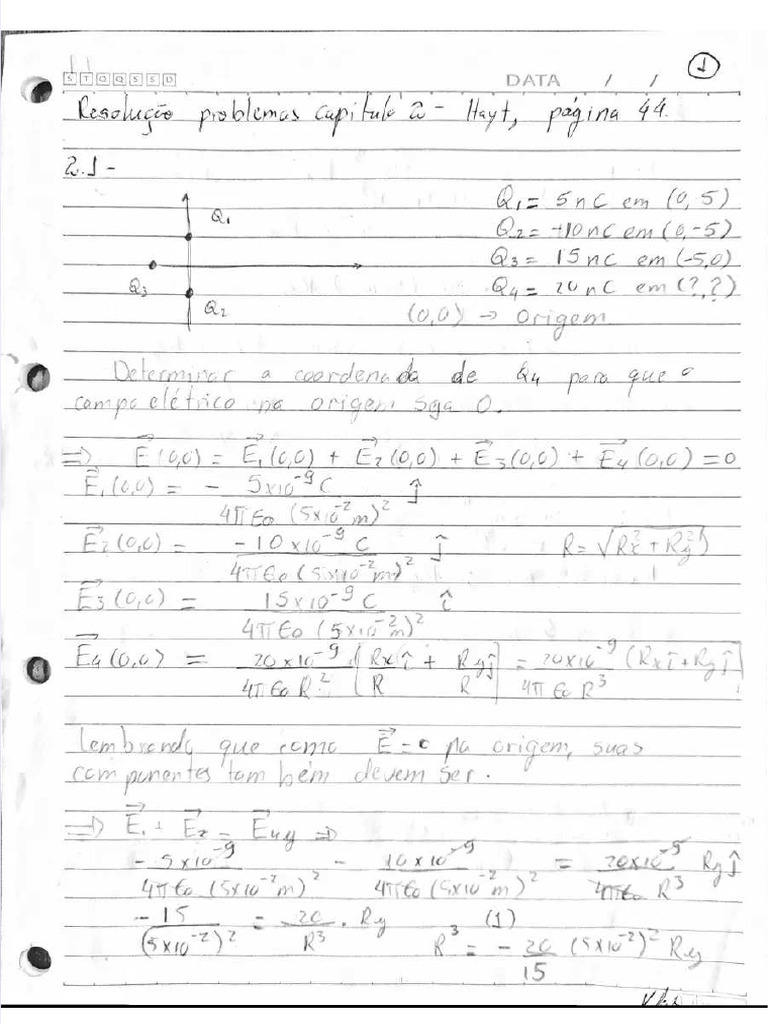 1
S T Q Q S S D DATA / /
Resolução problemas capítulo 2 - Hayt, página 44.
2.1-
Q1 Q1 = 5nC em (0, 5)
Q2 = -10nC em (0,-5)
Q3 Q3 = 15nC em (-5,0)
Q2 Q4 = 20nC em (?,?)
(0,0) → origem
Determinar a coordenada de Q4 para que o
campo elétrico na origem seja 0.
⇒ E⃗(0,0) = E⃗1(0,0) + E⃗2(0,0) + E⃗3(0,0) + E⃗4(0,0) = 0
E⃗1(0,0) = - 5x10^-9 C / 4πϵo (5x10^-2 m)^2 ĵ
E⃗2(0,0) = -10x10^-9 C / 4πϵo (5x10^-2 m)^2 ĵ R = √(Rx^2 + Ry^2)
E⃗3(0,0) = 15x10^-9 C / 4πϵo (5x10^-2 m)^2 î
E⃗4(0,0) = 20x10^-9 / 4πϵo R^2 [Rx î / R + Ry ĵ / R] = 20x10^-9 / 4πϵo R^3 (Rx î + Ry ĵ)
Lembrando que como E⃗ = 0 na origem, suas
componentes também devem ser.
⇒ E⃗1 + E⃗2 = E⃗4y ⇒
- 5x10^-9 / 4πϵo (5x10^-2 m)^2 - 10x10^-9 / 4πϵo (5x10^-2 m)^2 = 20x10^-9 / 4πϵo R^3 Ry ĵ
-15 / (5x10^-2)^2 = 20 / R^3 . Ry (1) R^3 = - 20 / 15 (5x10^-2)^2 Ry